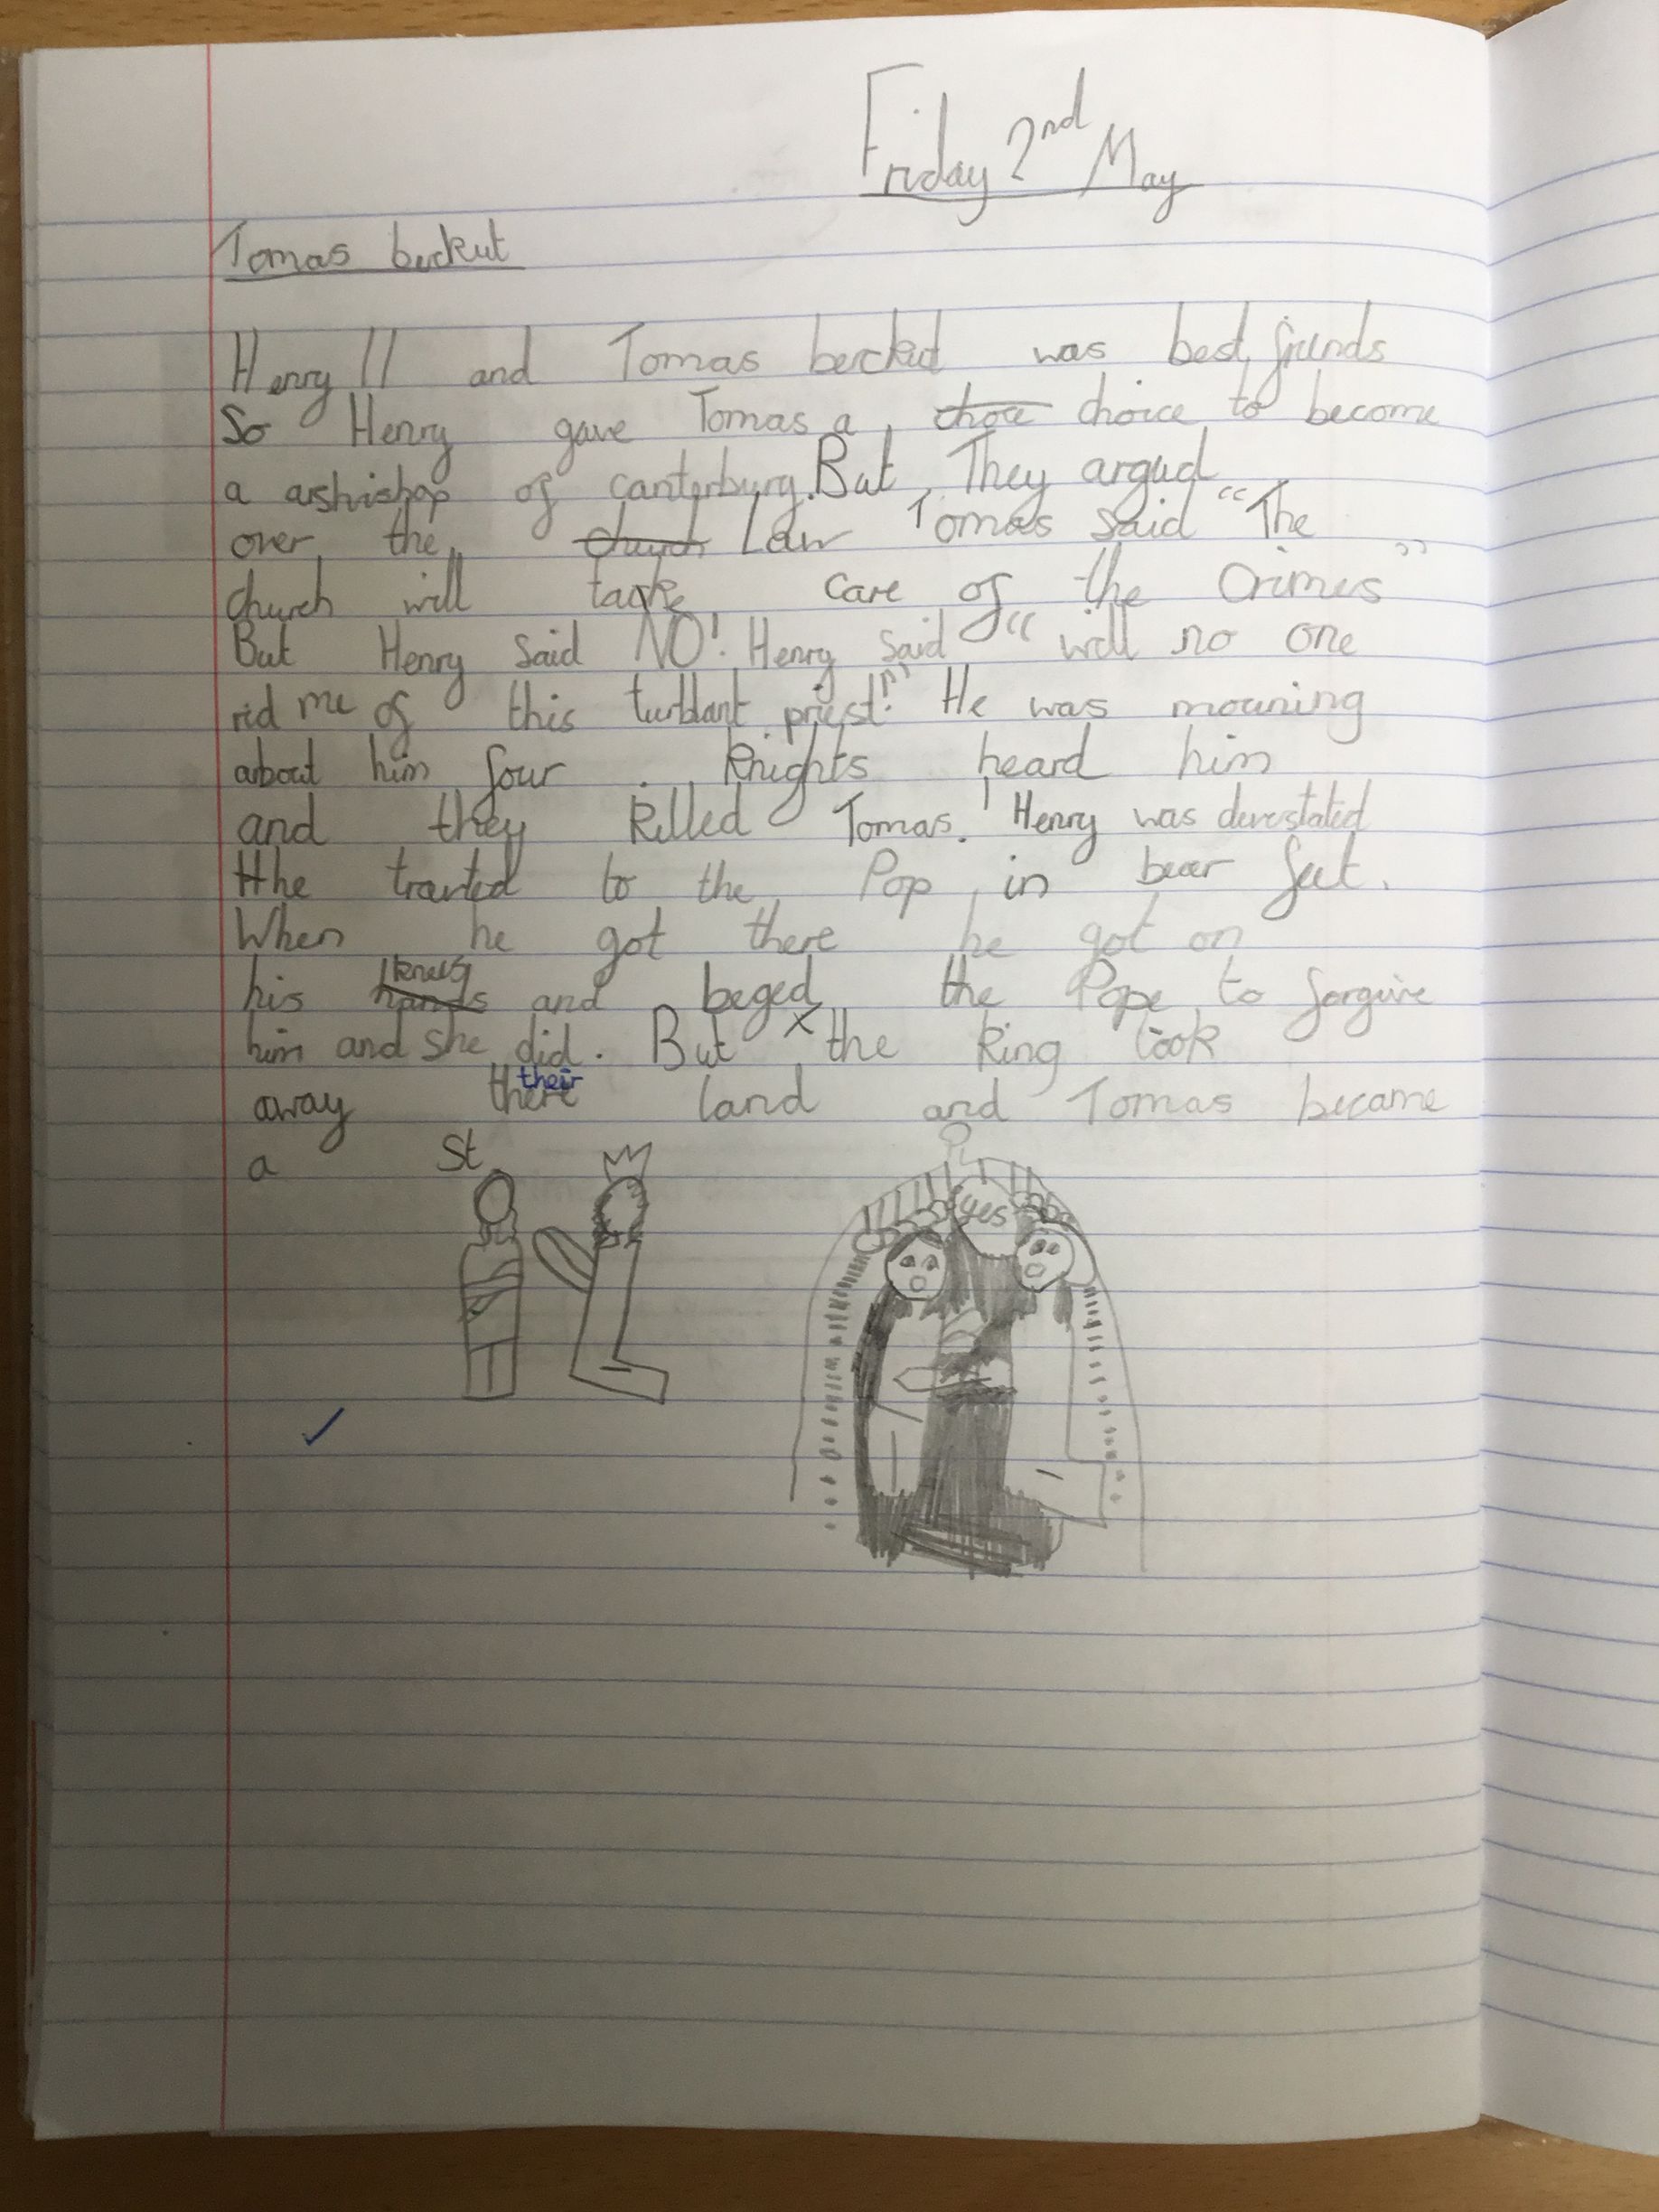 Friday 2nd May
Tomas beckut
Henry II and Tomas becket was best friends
So Henry gave Tomas a chose choice to become
a arshishop of canterburg. But They argud
over the church Law Tomas said "The
church will take care of the Crimes"
But Henry said NO! Henry said "will no one
rid me of this turblant priest!" He was mouning
about him four knights heard him
and they killed Tomas! Henry was devestated
Hhe travted to the Pop in bear feet.
When he got there he got on
his hands knees and beged the Pope to forgive
him and she did. But the king took
away there their land and Tomas became
a St.
yes